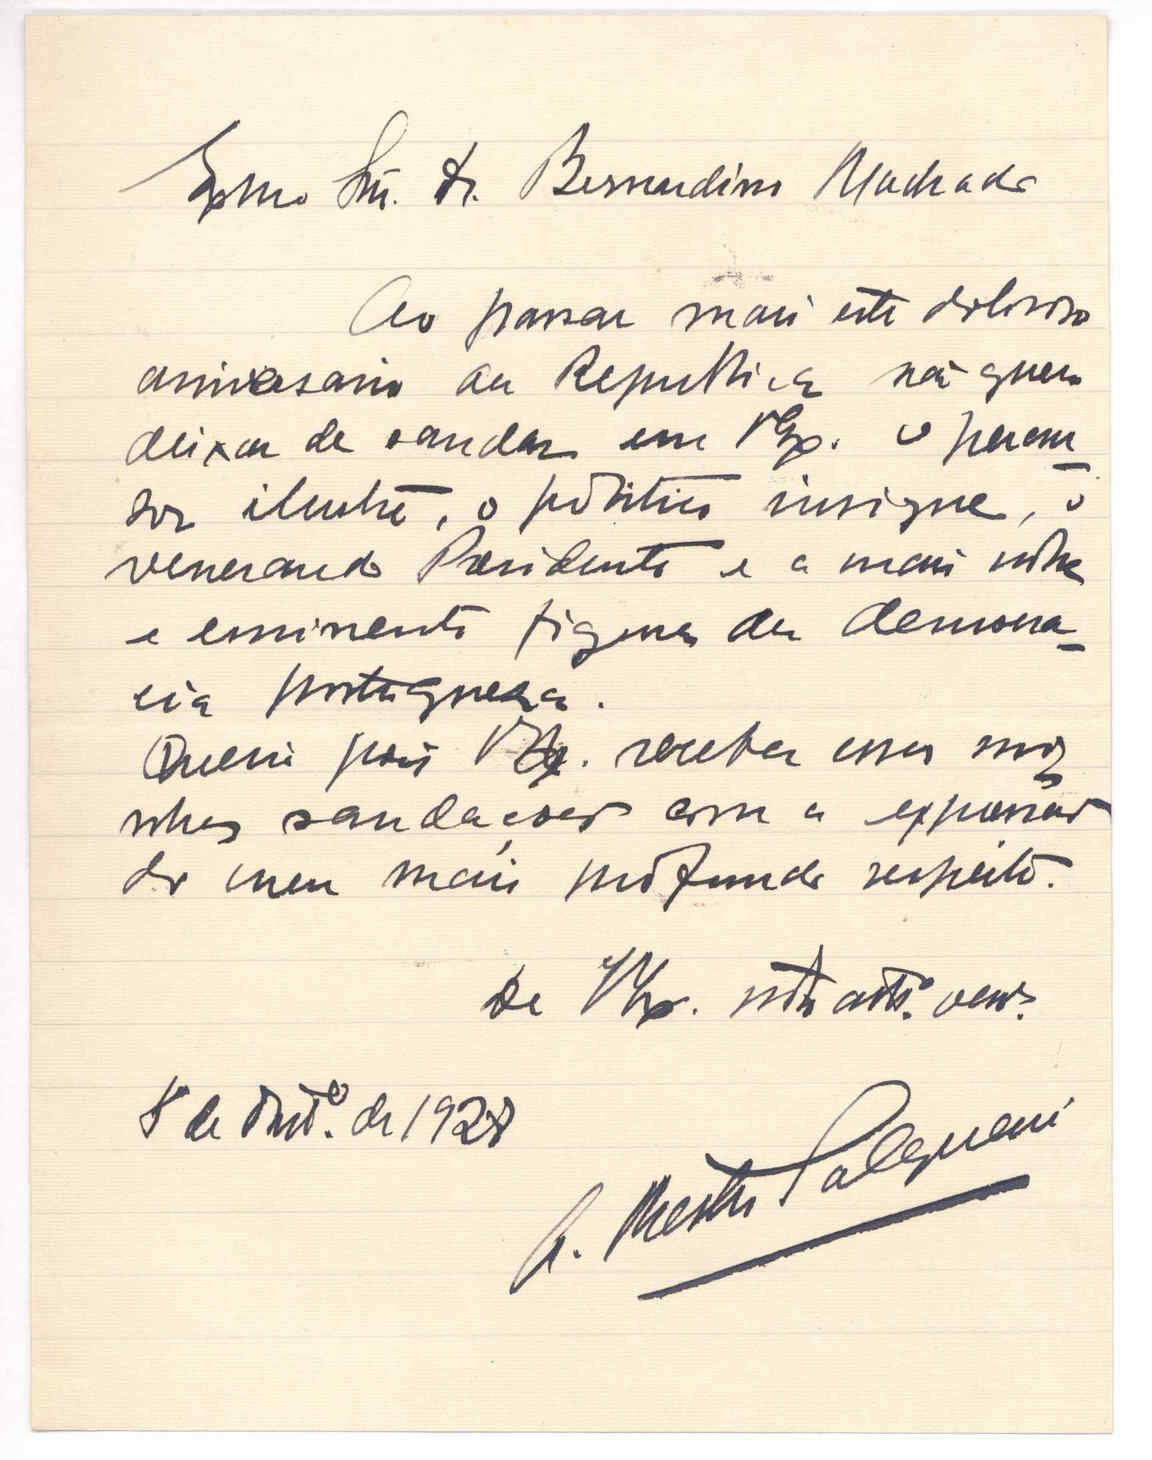 Exmo Snr. Dr. Bernardino Machado
Ao passar mais este doloroso
aniversario da Republica não quero
deixar de saudar em V. Ex. o
ilustre, o politico insigne, o
venerando Presidente e a mais nobre
e eminente figura da democra-
cia portugueza.
Queira pois V. Ex. receber essas mi-
nhas saudações com a expressão
do meu mais profundo respeito.
De V. Ex. mto atto. venr.
5 de Outo. de 1928
A. Mestre